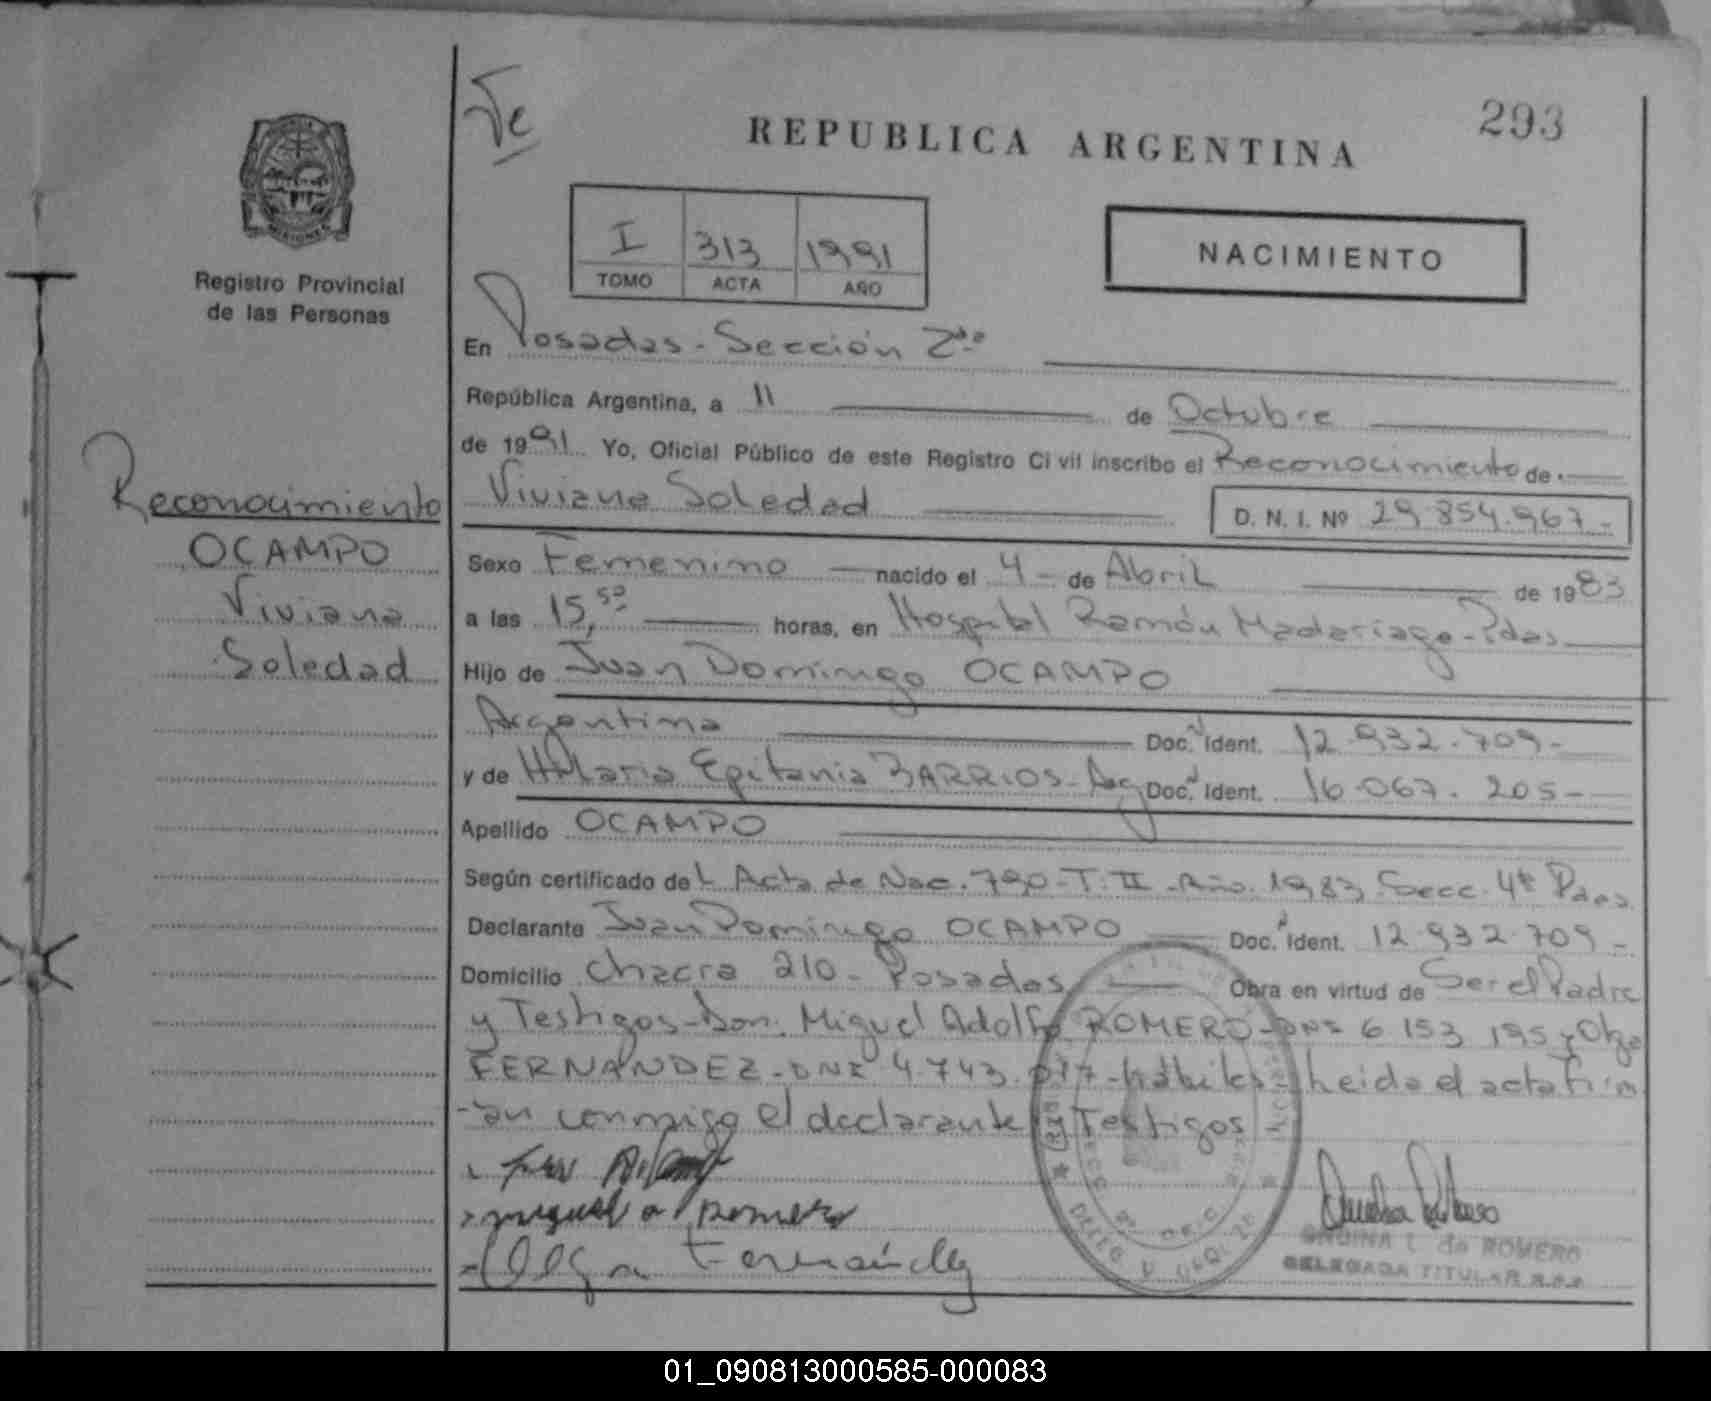 Ve
REPUBLICA ARGENTINA
293
I 313 1991
TOMO ACTA AÑO
NACIMIENTO
MISIONES
Registro Provincial
de las Personas
Reconocimiento
OCAMPO
Viviana
Soledad
En Posadas - Sección 2da
República Argentina, a 11 de Octubre
de 1991 Yo, Oficial Público de este Registro Civil inscribo el Reconocimiento de
Viviana Soledad D. N. I. Nº 29.854.967.-
Sexo Femenino nacido el 4 - de Abril de 1983
a las 15,50 horas, en Hospital Ramón Madariaga - Pdas
Hijo de Juan Domingo OCAMPO
Argentina Doc. Ident. 12.932.709-
y de Epitania BARRIOS - Arg Doc. Ident. 16.067.205-
Apellido OCAMPO
Según certificado del Acta de Nac. 790 - T. II - Año 1983 Secc. 4ta Pdas
Declarante Juan Domingo OCAMPO Doc. Ident. 12.932.709-
Domicilio Chacra 210 - Posadas Obra en virtud de Ser el Padre
y Testigos - Don. Miguel Adolfo ROMERO - DNI 6.153.195 y Olga
FERNANDEZ - DNI 4.743.017 - hábiles - heida el acta firm
-an conmigo el declarante y Testigos
miguel a romero
Olga Fernández
L. de ROMERO
DELEGADA TITULAR
01_090813000585-000083